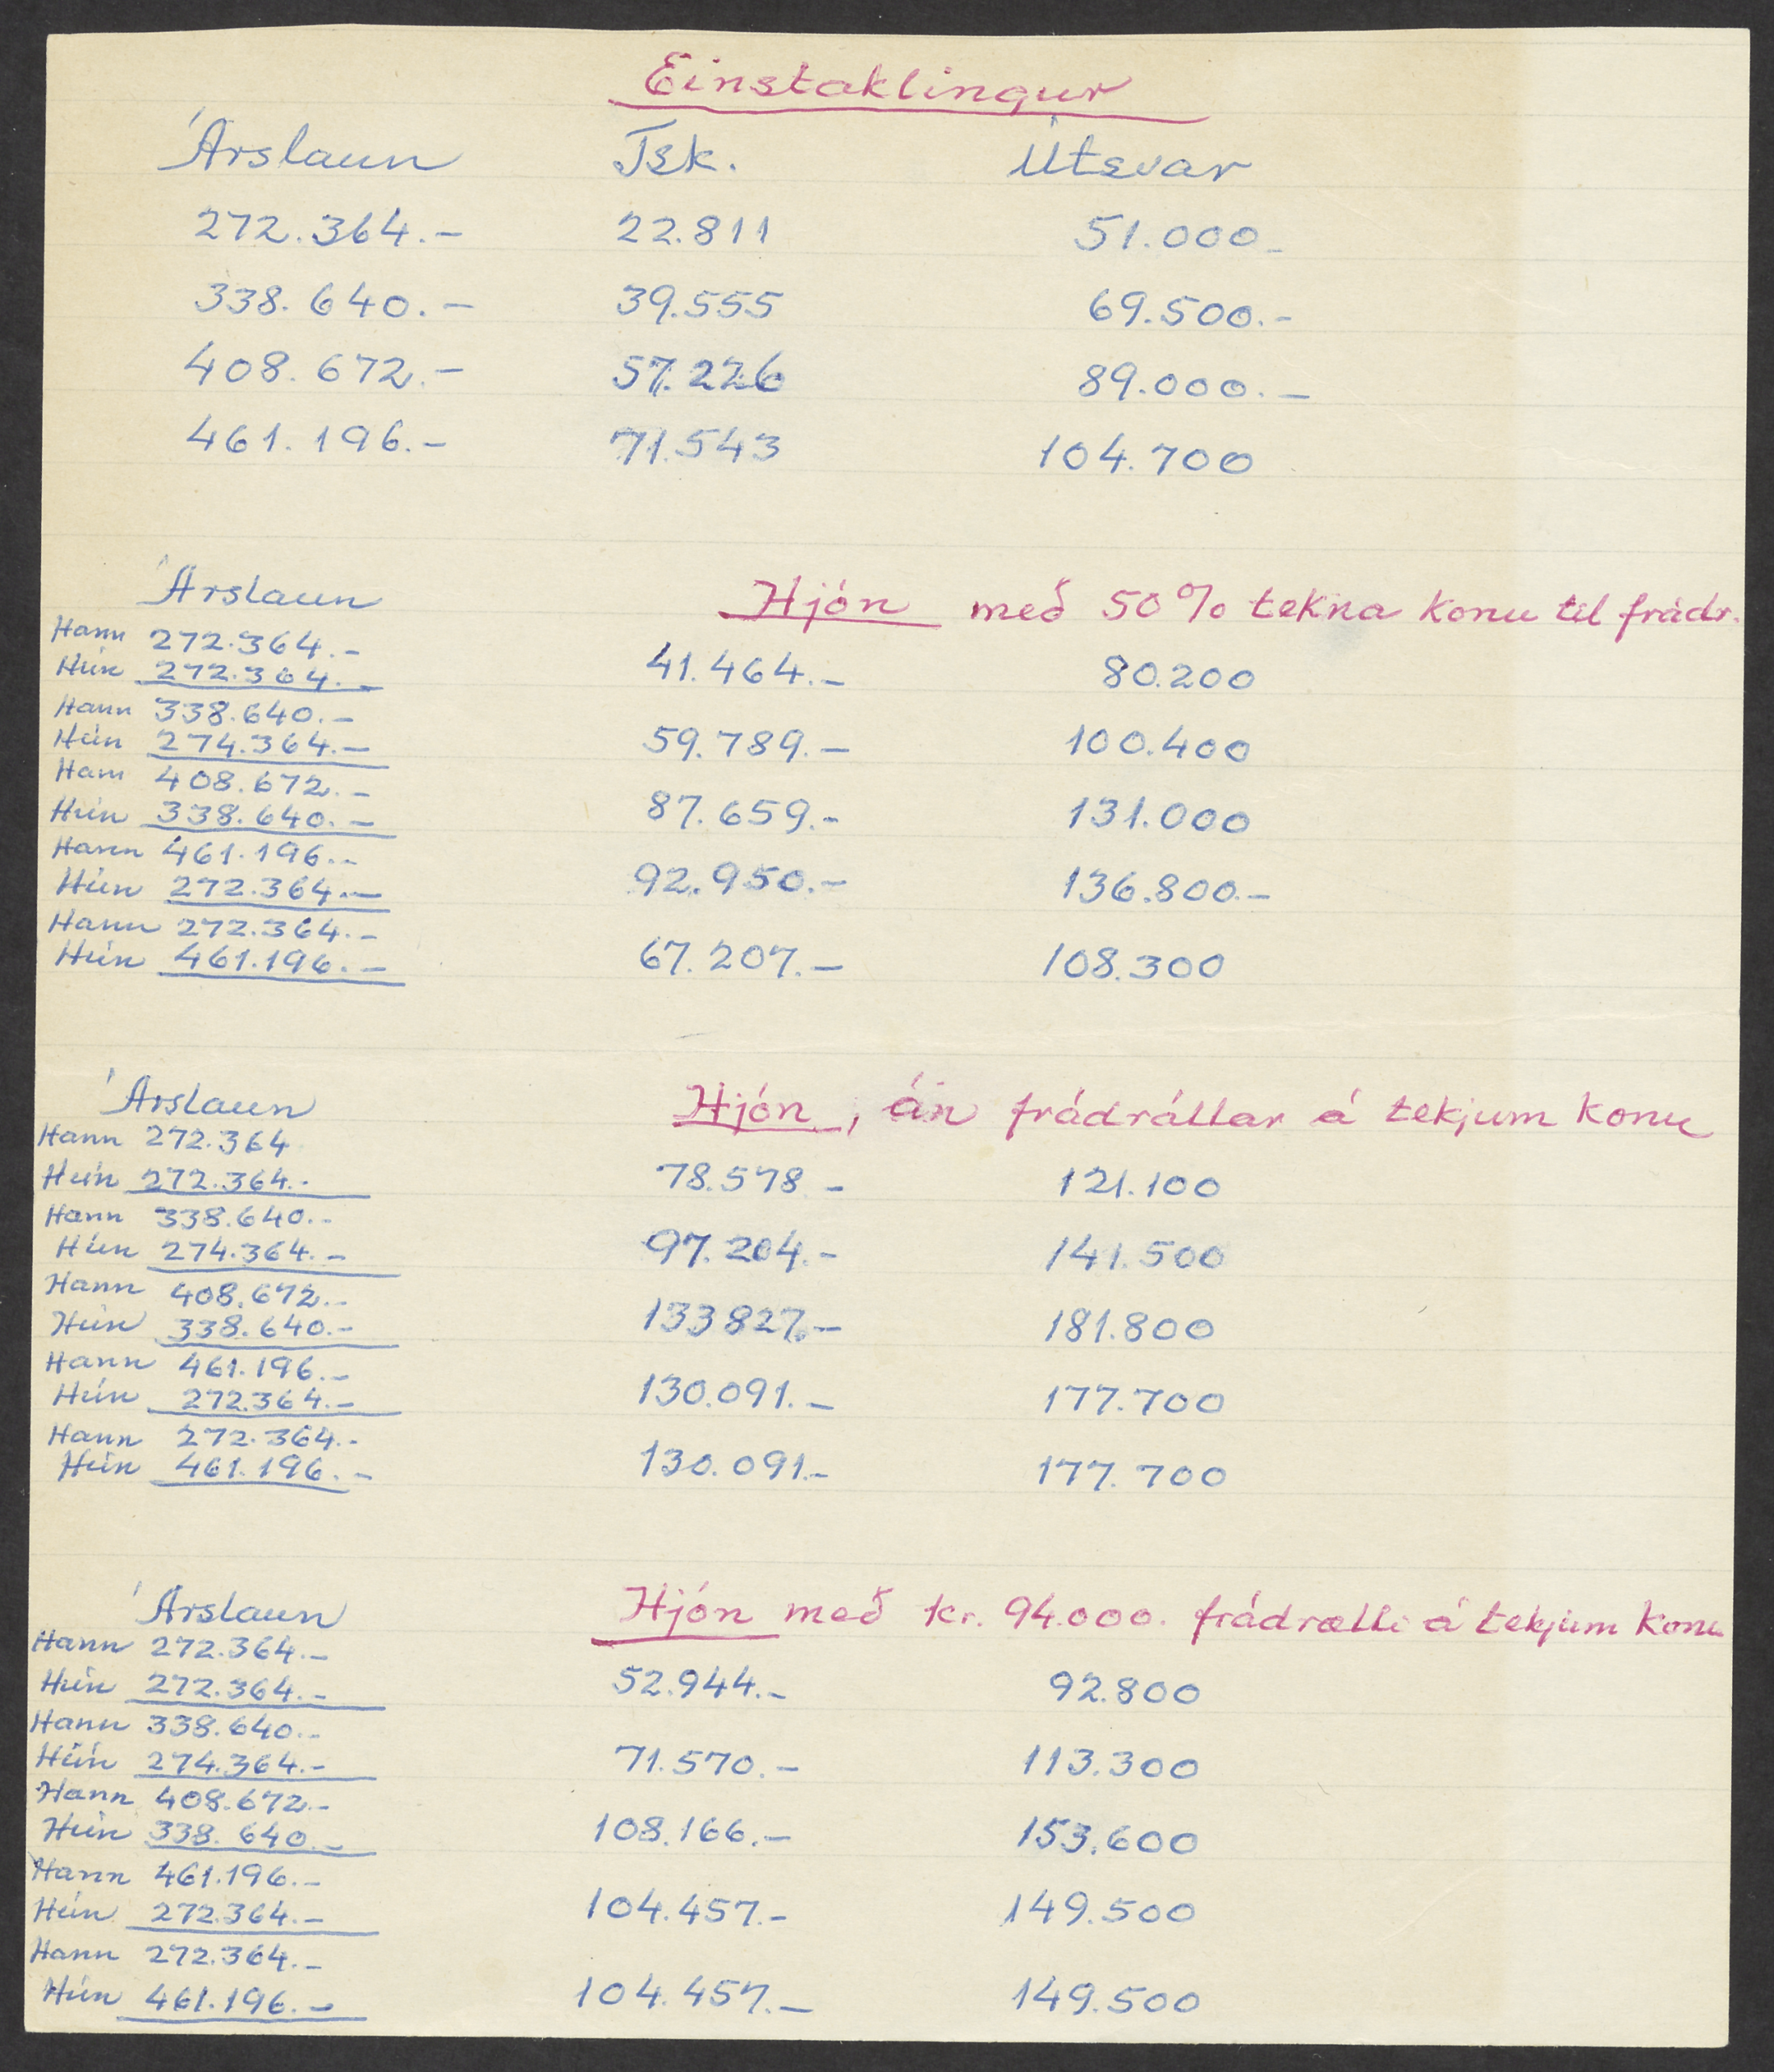 Einstaklingur
Árslaun Tsk. Útsvar
272.364.- 22.811 51.000-
338.640.- 39.555 69.500.-
408.672.- 57.226 89.000.-
461.196.- 71.543 104.700
Árslaun Hjón með 50% tekna konu til frádr.
Hann 272.364.-
Hún 272.364.- 41.464.- 80.200
Hann 338.640.-
Hún 274.364.- 59.789.- 100.400
Hann 408.672.-
Hún 338.640.- 87.659.- 131.000
Hann 461.196.-
Hún 272.364.- 92.950.- 136.800.-
Hann 272.364.-
Hún 461.196.- 67.207.- 108.300
Árslaun Hjón, án frádráttar á tekjum konu
Hann 272.364
Hún 272.364.- 78.578 - 121.100
Hann 338.640.-
Hún 274.364.- 97.204.- 141.500
Hann 408.672.-
Hún 338.640.- 133827.- 181.800
Hann 461.196.-
Hún 272.364.- 130.091.- 177.700
Hann 272.364.-
Hún 461.196.- 130.091.- 177.700
Árslaun Hjón með kr. 94.000. frádrætti á tekjum konu
Hann 272.364.-
Hún 272.364.- 52.944.- 92.800
Hann 338.640.-
Hún 274.364.- 71.570.- 113.300
Hann 408.672.-
Hún 338.640.- 108.166.- 153.600
Hann 461.196.-
Hún 272.364.- 104.457.- 149.500
Hann 272.364.-
Hún 461.196.- 104.457.- 149.500